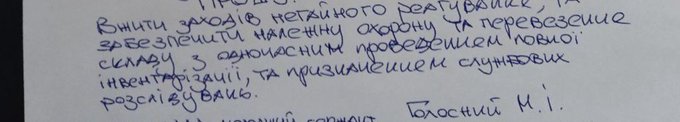 вжити заходів негайного реагування, та
забезпечити належну охорону та перевезення
складу з одночасним проведенням повної
інвентарізації, та призначенням службових
розслідувань.
Голосний М.І.